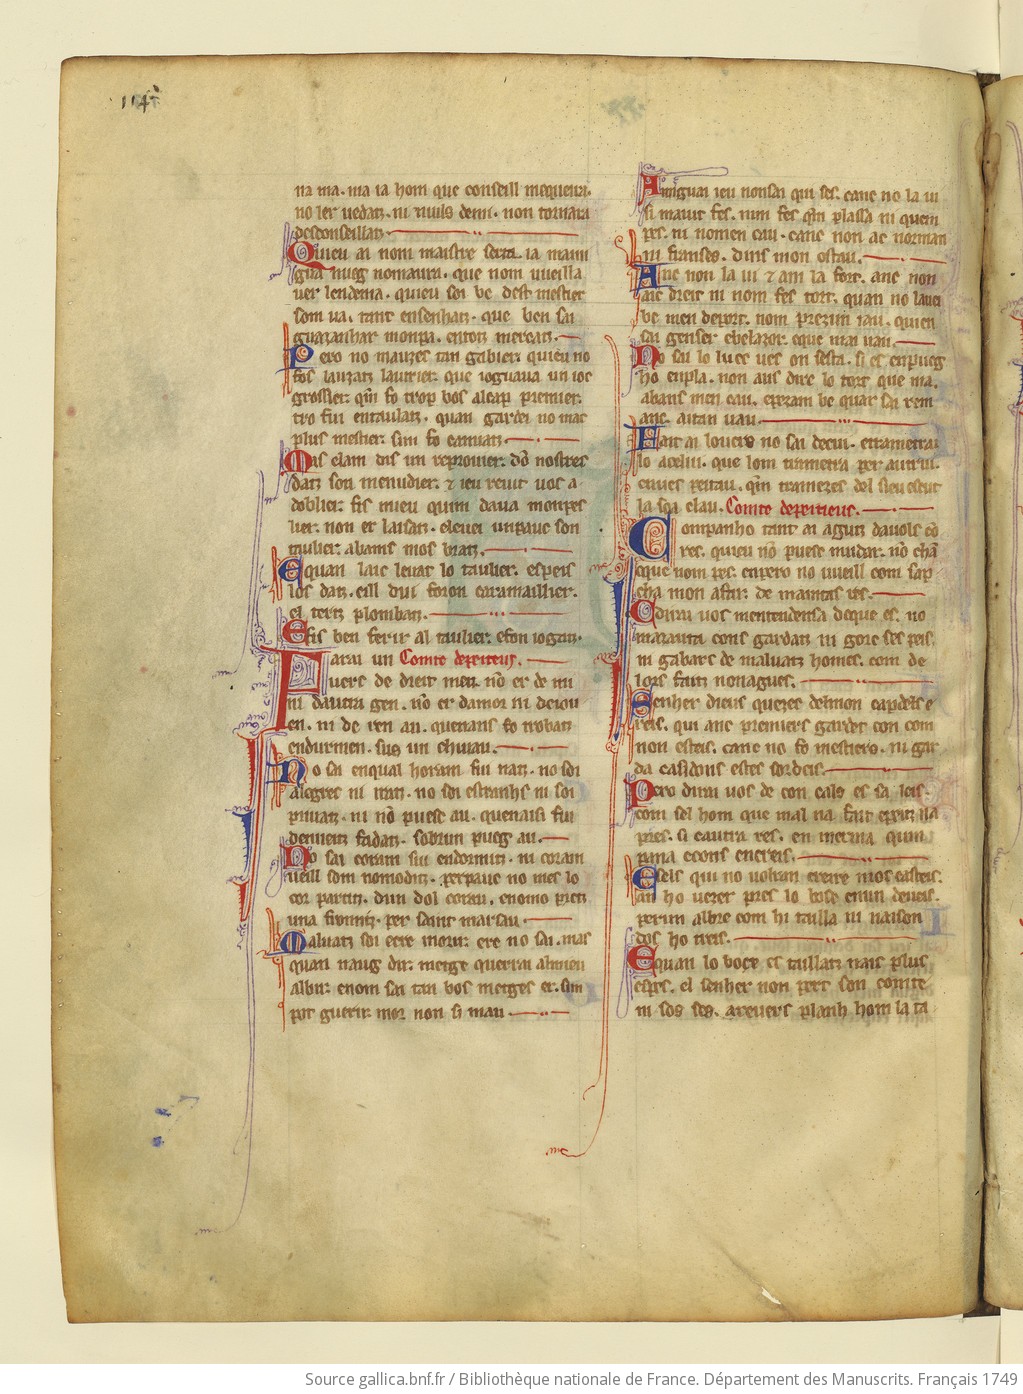 na ma. ma ia hom que conseill mequeira.
no ler uedatz. ni nuils de mi. non tornara
desconseillatz
Quieu ai nom maistre serta. ia mami
gua nueg nomaura. que nom uueilla
uer lendema. quieu soi be dest mestier
som ua. tant ensenhatz. que ben sai
guazanhar monpa. en totz mercatz.
Pero no mauzes tan gabier. quieu no
fos lautrier. que ioguaua un ioc
grossier. qim fo trop bos al cap premier.
tro fui entaulatz. quan gardei no mac
plus mestier. sim fo camiatz.
Mas elam dis un reprouier. do nostres
datz son menudier. ⁊ ieu reuit uos a
doblier. fis mieu quim daua monpes
lier. non er laisatz. eleuei un pauc son
taulier. abams mos bratz.
E quan laic leuat lo taulier. espeis
los datz. eill dui foron caramaillier.
el tertz plombatz.
E fis ben ferir al taulier. e fon iogatz.
Farai un Comte depeiteus.
uers de dreit nien. no er de mi
ni dautra gen. no er damor ni de iou
en. ni de ren au. quenans fo trobatz
endurmen. sus un chiuau.
No sai en qual horam fui natz. no soi
alegres ni iratz. no soi estranhs ni soi
priuatz. ni no puesc au. quenaisi fui
denueitz fadatz. sobrun pueg au.
No sai coram sui endormitz. ni coram
ueill som nomoditz. per pauc no mes lo
cor partitz. dun dol corau. e no mo pretz
una fromitz. per saint marsau.
Malautz soi e cre morir. e re no sai. mas
quan naug dir. metge querrai al mieu
albir. e nom sai tau bos metges er. sim
pot guerir. mor non si mau
Amigua ieu nonsai qui ses. canc no la ui
si maiut fes. nim fes qim plassa ni quem
pes. ni nomen cau. canc non ac norman
ni franses. dins mon ostau.
Anc non la ui ⁊ am la fort. anc non
aic dreit ni nom fes tort. quan no la uei
be men deport. nom prezun iau. quien
sai genser e belazor. e que mai uau.
No sai lo luec ues on sesta. si es en pueg
ho en pla. non aus dire lo tort que ma.
abans men cau. e pezam be quar sa rem
anc. aitan uau.
Fait ai louers no sai de cui. e trametrai
lo acelui. que lom trametra per autrui.
enues peitau. qim trameses del sieu estui
la sia clau. Comte depeiteus.
Companho tant ai agutz dauols co
res. quieu no puesc mudar. no cha
e que nom pes. enpero no uueill com sap
cha mon afar. de maintas res.
E dirai uos mentendensa de que es. no
magrauta cons gardatz ni gorc ses peis.
ni gabars de maluatz homes. com de
lors faitz nonagues.
Senher dieus quezes del mon capdels e
reis. qui anc premiers gardet con com
non esteis. canc no fo mestiers. ni gar
da casidons estes sordeis.
Pero dirai uos de con cals es sa leis.
com sel hom que mal na fait e peitz na
pres. si cautra res. en merma quin
pana e cons encreis.
E sels qui no uolran creire mos casteis.
an ho uezer pres lo bosc en un deueis.
per un albre com hi tailla ni naison
dos ho treis.
E quan lo bocx es taillatz nais plus
espes. el senher non pert son comte
ni sos ses. areuers planh hom la ta